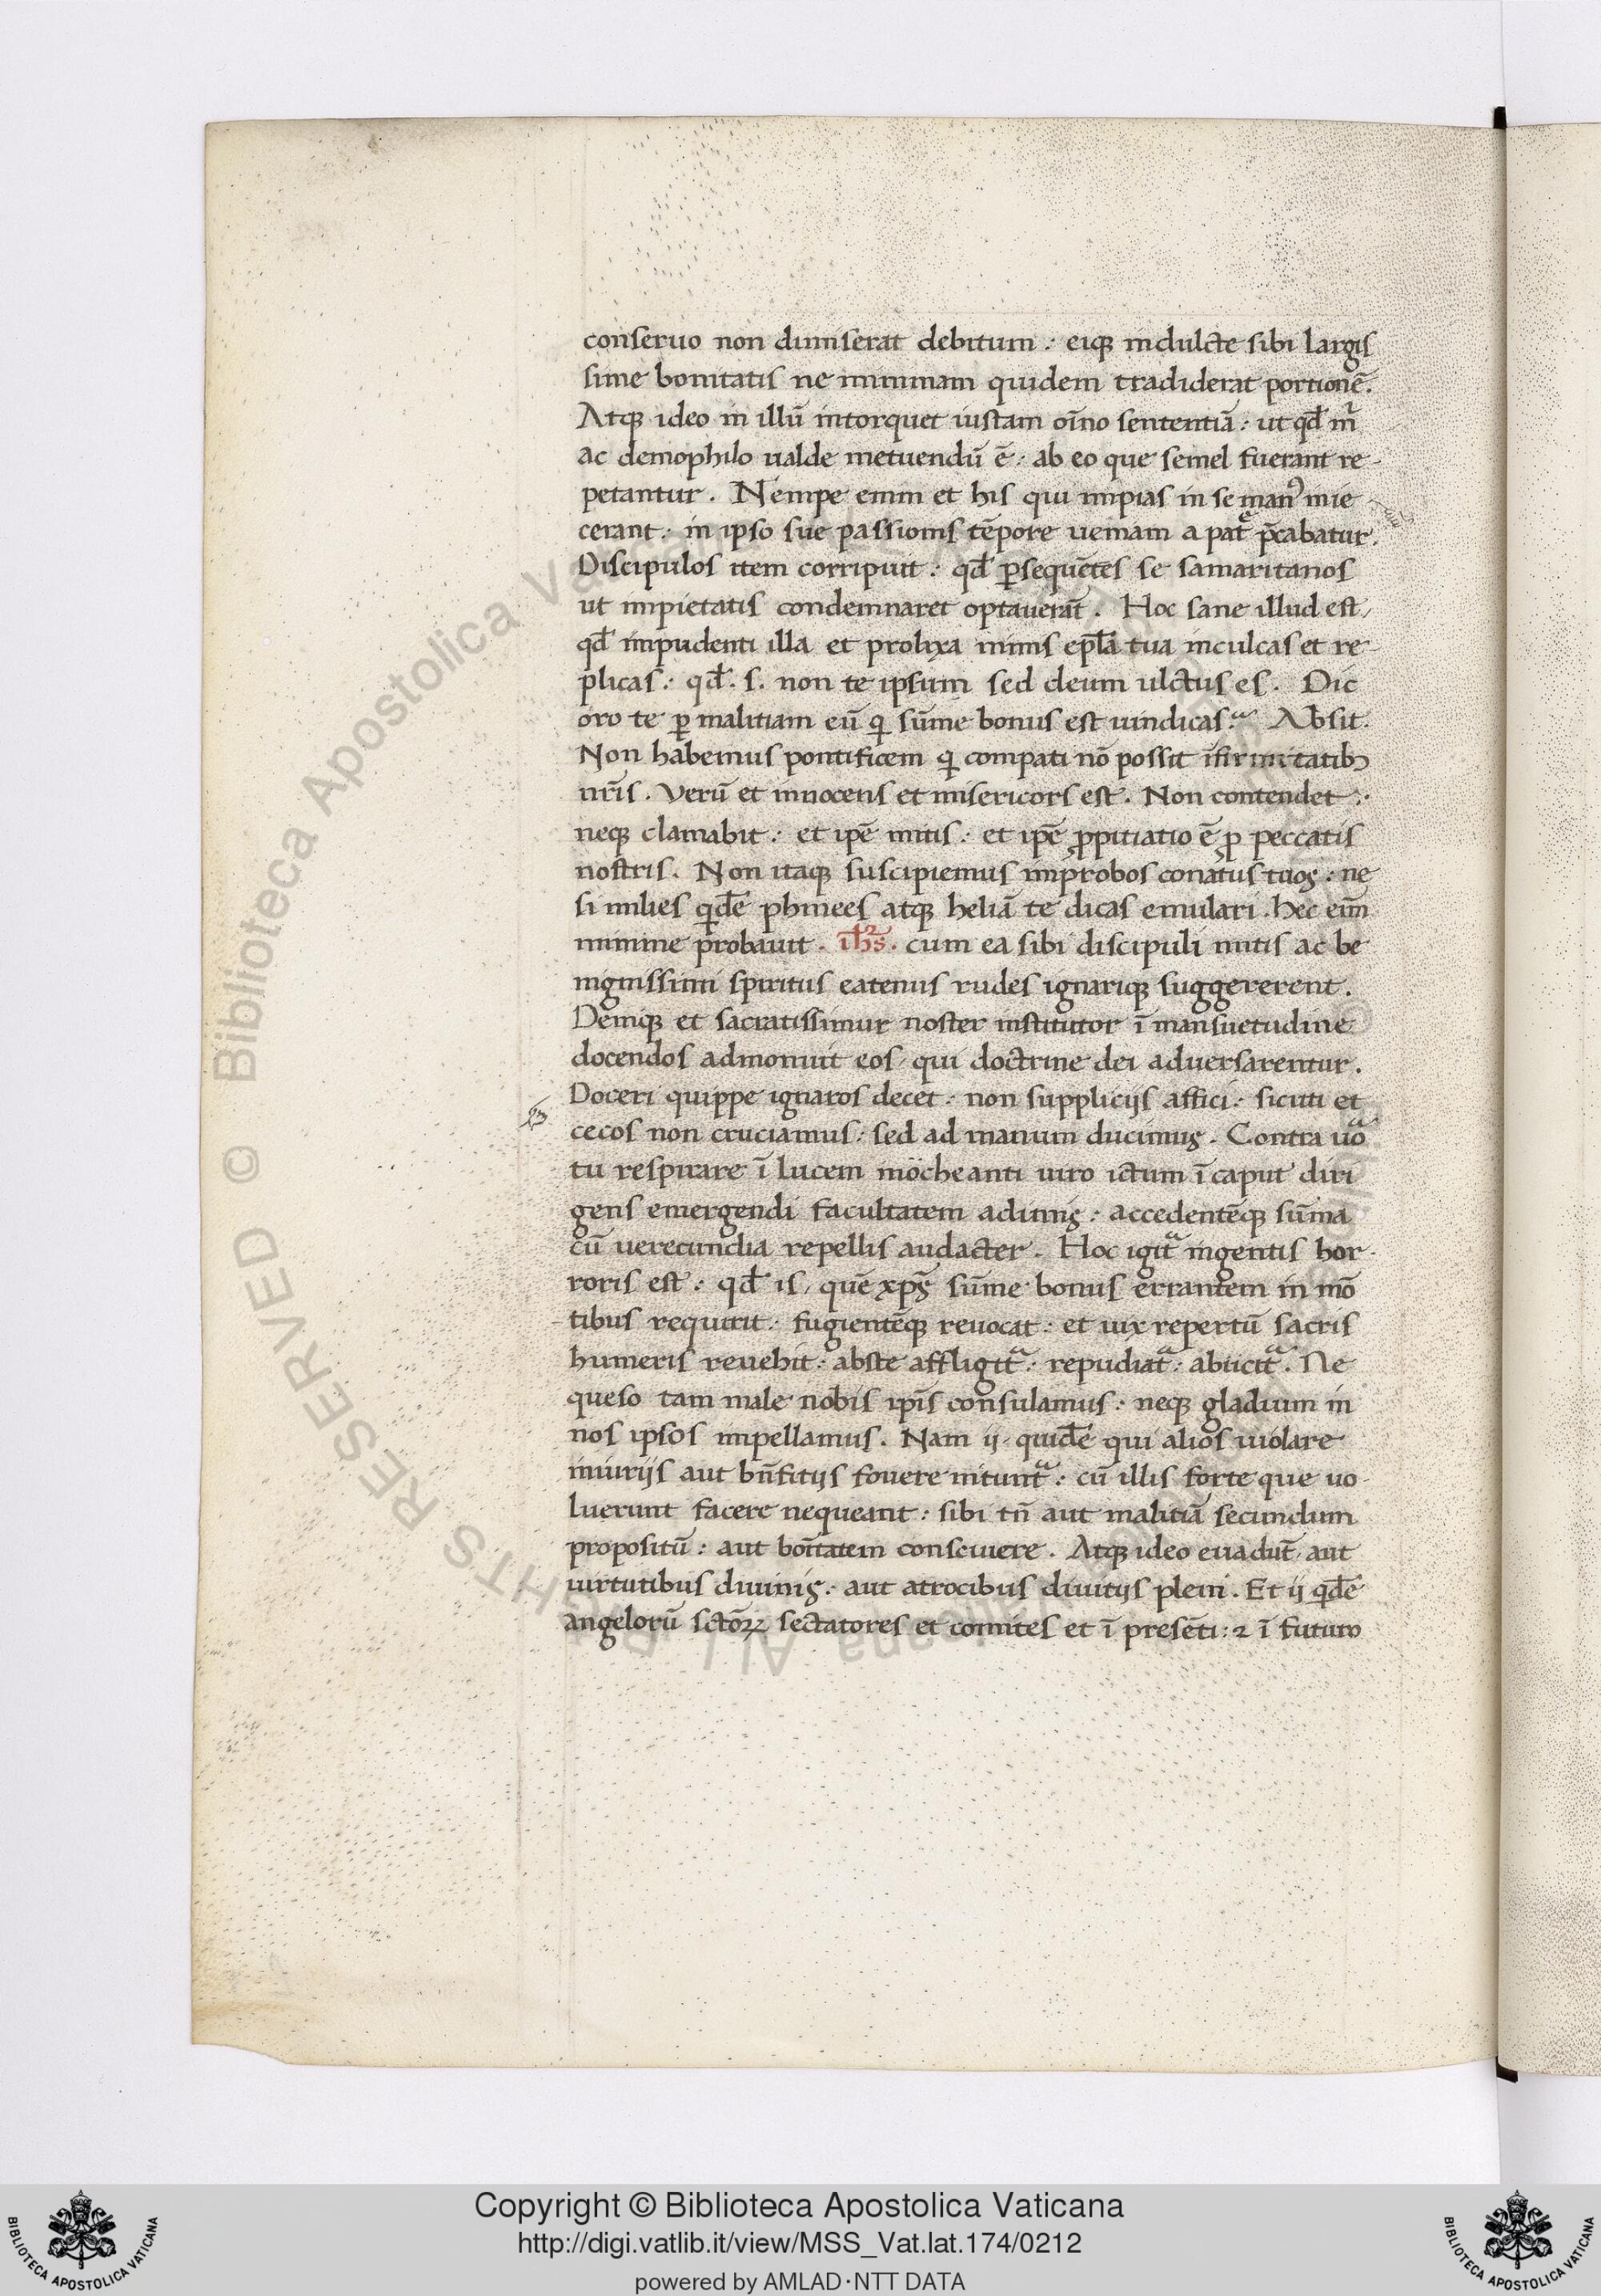 conseruo non dimiserat debitum : eiq3 indulcte sibi largis
sime bonitatis ne minimam quidem tradiderat portionē.
Atq3 ideo in illū intorquet iustam oīno sententiā : ut qđ mr̄
ac demophilo ualde metuendū ē : ab eo que semel fuerant re-
petantur. Nempe enim et his qui impias in se manꝰ inie
cerant : in ipso sue passionis tēpore ueniam a patͤ p̄cabatur.
Discipulos item corripuit : qđ ꝑsequētes se samaritanos
ut impietatis condemnaret optauerāt. Hoc sane illud est,
qđ impudenti illa et prolixa nimis ep̄la tua inculcas et re-
plicas : qđ . s. non te ipsum sed deum ulctus es. Dic
oro te ꝑ malitiam eū qi sūme bonus est uindicas. Absit.
Non habemus pontificem qi compati nō possit īfirmitatib3
nr̄is. Verū et innocens et misericors est. Non contendet :
neq3 clamabit : et ipē mitis : et ipē ꝓpitiatio ē ꝓ peccatis
nostris. Non itaq3 suscipiemus improbos conatus tuos : ne
si milies qidē phinees atq3 heliā te dicas emulari. Hec eim̄
minime probauit . ih̄s . cum ea sibi discipuli mitis ac be
nignissimi spiritus eatenus rudes ignariq3 suggererent.
Deniq3 et sacratissimus noster institutor ī mansuetudine
docendos admonuit eos, qui doctrine dei aduersarentur.
Doceri quippe ignaros decet : non supplicijs affici : sicuti et
cecos non cruciamus : sed ad manum ducimus. Contra uͦo
tu respirare ī lucem incheanti uiro ictum ī caput diri
gens emergendi facultatem adimis : accedentēq3 sūma
cū uerecundia repellis audacter. Hoc igitᵃ ingentis hor-
roris est : qđ is, quē xp̄s sūme bonus errantem in mō
tibus requirit : fugientēq3 reuocat : et uix repertū sacris
humeris reuehit : abste affligitᵃ : repudiatᵃ : abiicitᵃ. Ne
queso tam male nobis ip̄is consulamus : neq3 gladium in
nos ipsos impellamus. Nam ij, quidē qui alios uiolare
iniurijs aut bn̄fitijs fouere nituntᵃ : cū illis forte que uo-
luerunt facere nequeant : sibi tn̄ aut malitiā secundum
propositū : aut bōitatem consciuere. Atq3 ideo euadūt, aut
uirtutibus diuinis : aut atrocibus diuitijs pleni. Et ij qidē
angelorū sctōꝝ sectatores et comites et ī presēti : ⁊ ī futuro
Copyright © Biblioteca Apostolica Vaticana
http://digi.vatlib.it/view/MSS_Vat.lat.174/0212
powered by AMLAD·NTT DATA